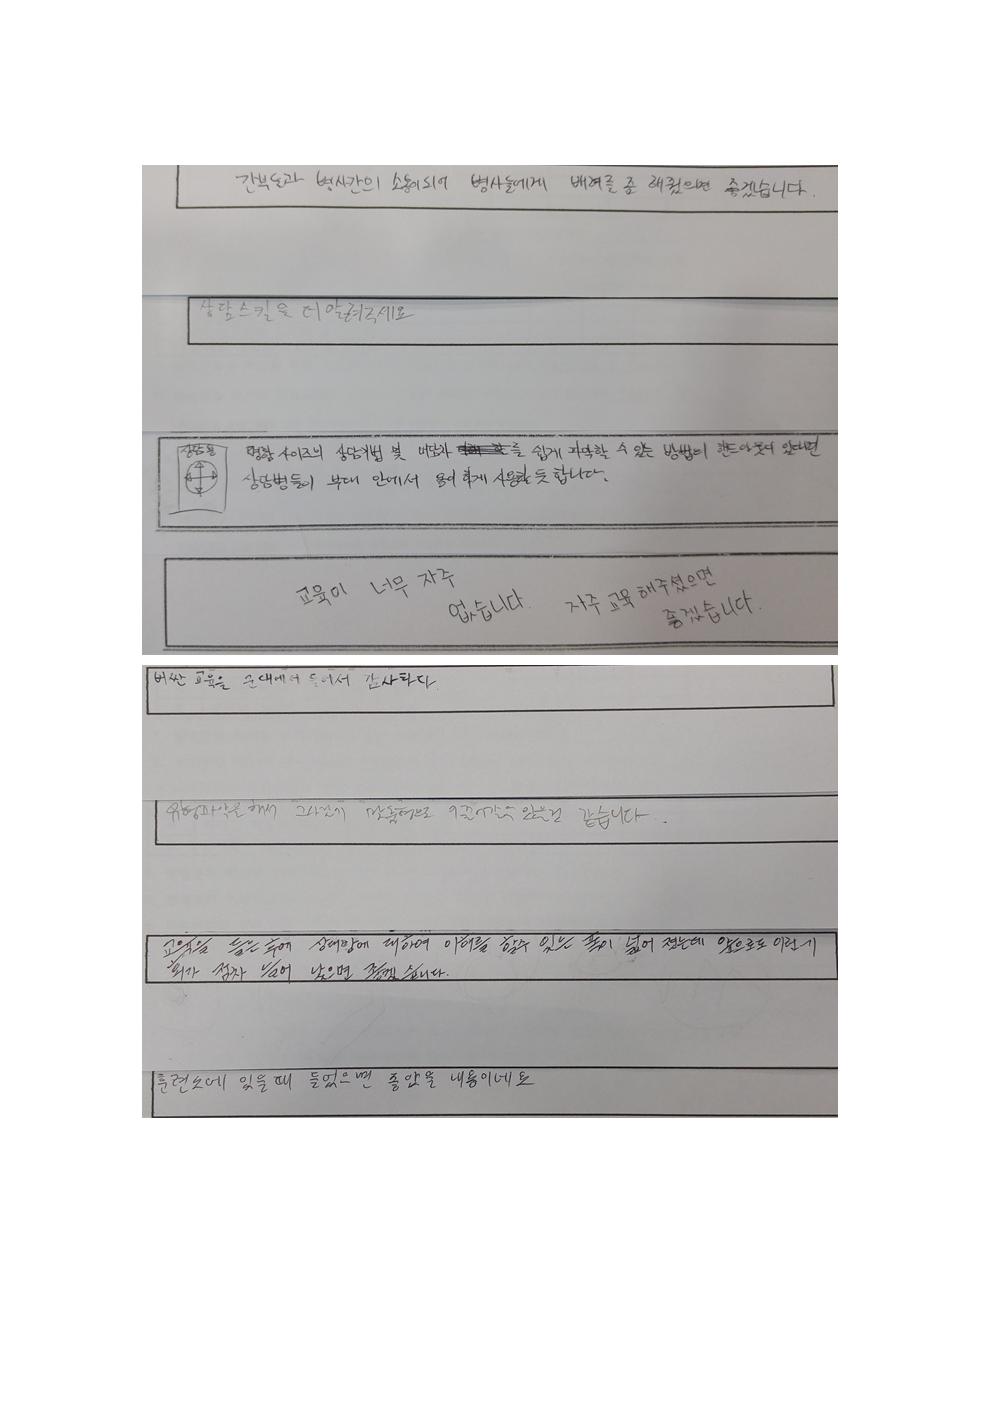 간부들과 병사간의 소통이되어 병사들에게 배려를 좀 해줬으면 좋겠습니다.
상담스킬을 더 알려주세요
상담용
명함 사이즈의 상담기법 및 내담자 를 쉽게 파악할 수 있는 방법의 핸드아웃이 있다면
상담병들이 부대 안에서 용이하게 사용할 듯 합니다.
교육이 너무 자주
없습니다. 자주 교육해주셨으면
좋겠습니다.
비싼 교육을 군대에서 들어서 감사하다
유형파악을 해서 맞춤형으로 같습니다.
교육을 들은 후에 상대방에 대하여 이해를 할수 있는 폭이 넓어 졌는데 앞으로도 이런 기
회가 점차 늘어 났으면 좋겠습니다.
훈련소에 있을때 들었으면 좋았을 내용이네요